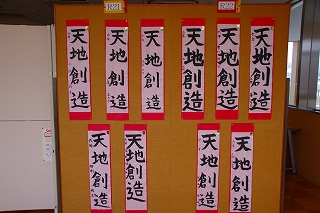 天地創造
天地創造
天地創造
天地創造
天地創造
天地創造
天地創造
天地創造
天地創造
天地創造